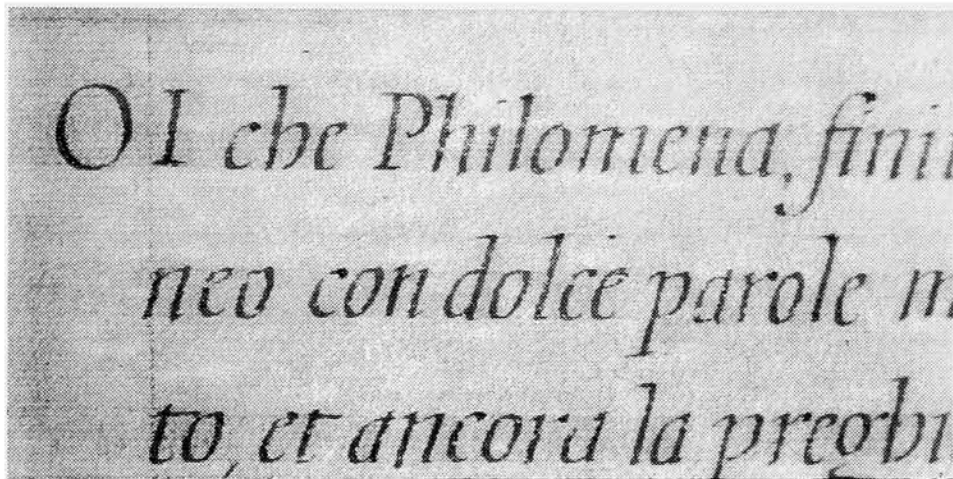 OI che Philomena, fini
neo con dolce parole m
to, et ancora la preghi